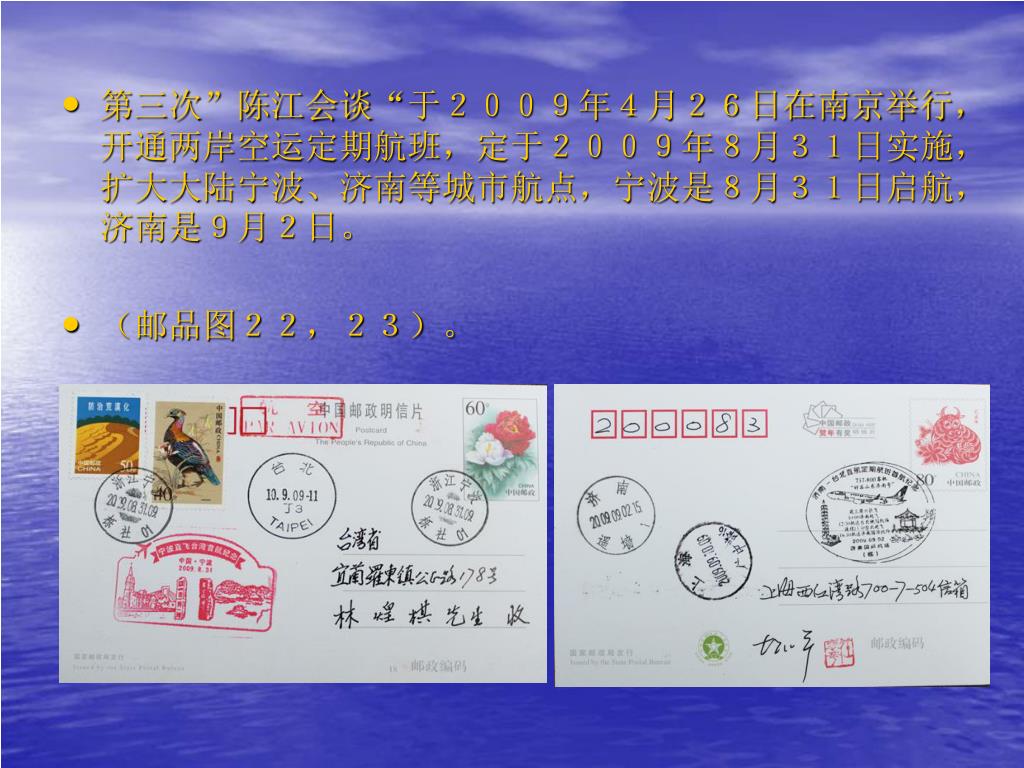 第三次”陈江会谈“于２００９年４月２６日在南京举行，
开通两岸空运定期航班，定于２００９年８月３１日实施，
扩大大陆宁波、济南等城市航点，宁波是８月３１日启航，
济南是９月２日。
（邮品图２２，２３）。
防治荒漠化
中国邮政
CHINA
50
中国邮政
CHINA
40
航 空
PAR AVION
中国邮政明信片
Postcard
The People's Republic of China
60
CHINA
中国邮政
浙江宁波
2009.08.31.09
台 北
10.9.09-11
J3
TAIPEI
浙江宁波
2009.08.31.09
宁波直飞台湾首航纪念
中国·宁波
2009.8.31
台湾省
宜蘭羅東鎮公正路178号
林煌棋先生 收
国家邮政局发行
Issued by the State Postal Bureau
邮政编码
200083
中国邮政
贺年有奖
CHINA
中国邮政
80
济南
2009.09.02.15
济南－台北首航定期航班首航纪念
737-800客机
2009.09.02
济南国际机场
上海
2009.09.10.09
上海西江湾路700-7-504信箱
国家邮政局发行
Issued by the State Postal Bureau
邮政编码